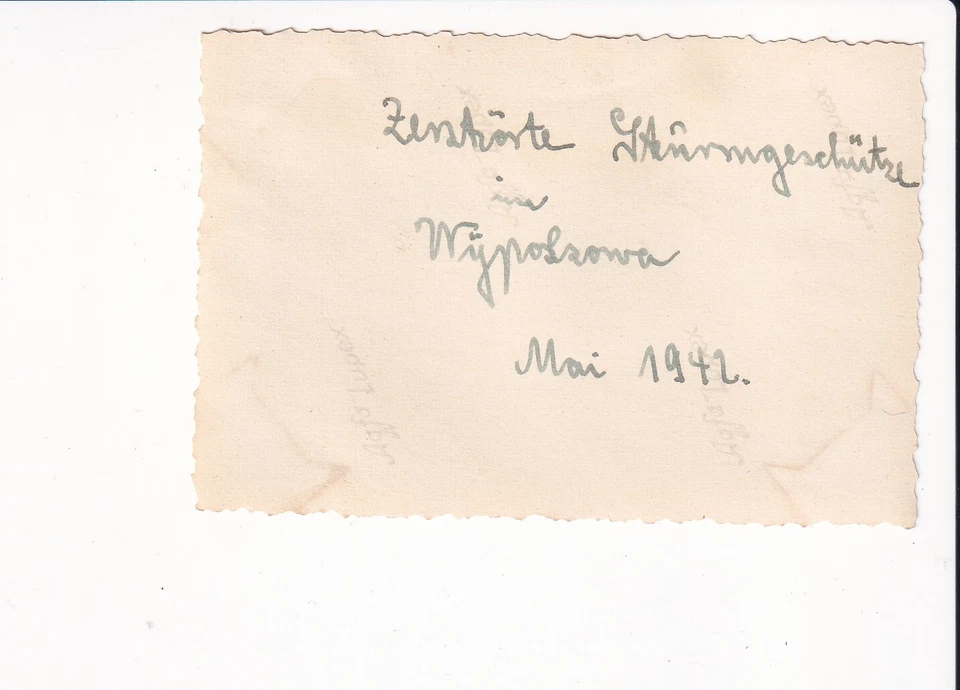 Zerstörte Sturmgeschütze
in
Wÿpolsowa
Mai 1942.
Agfa Lupex
Agfa Lupex
Agfa Lupex
Agfa Lupex